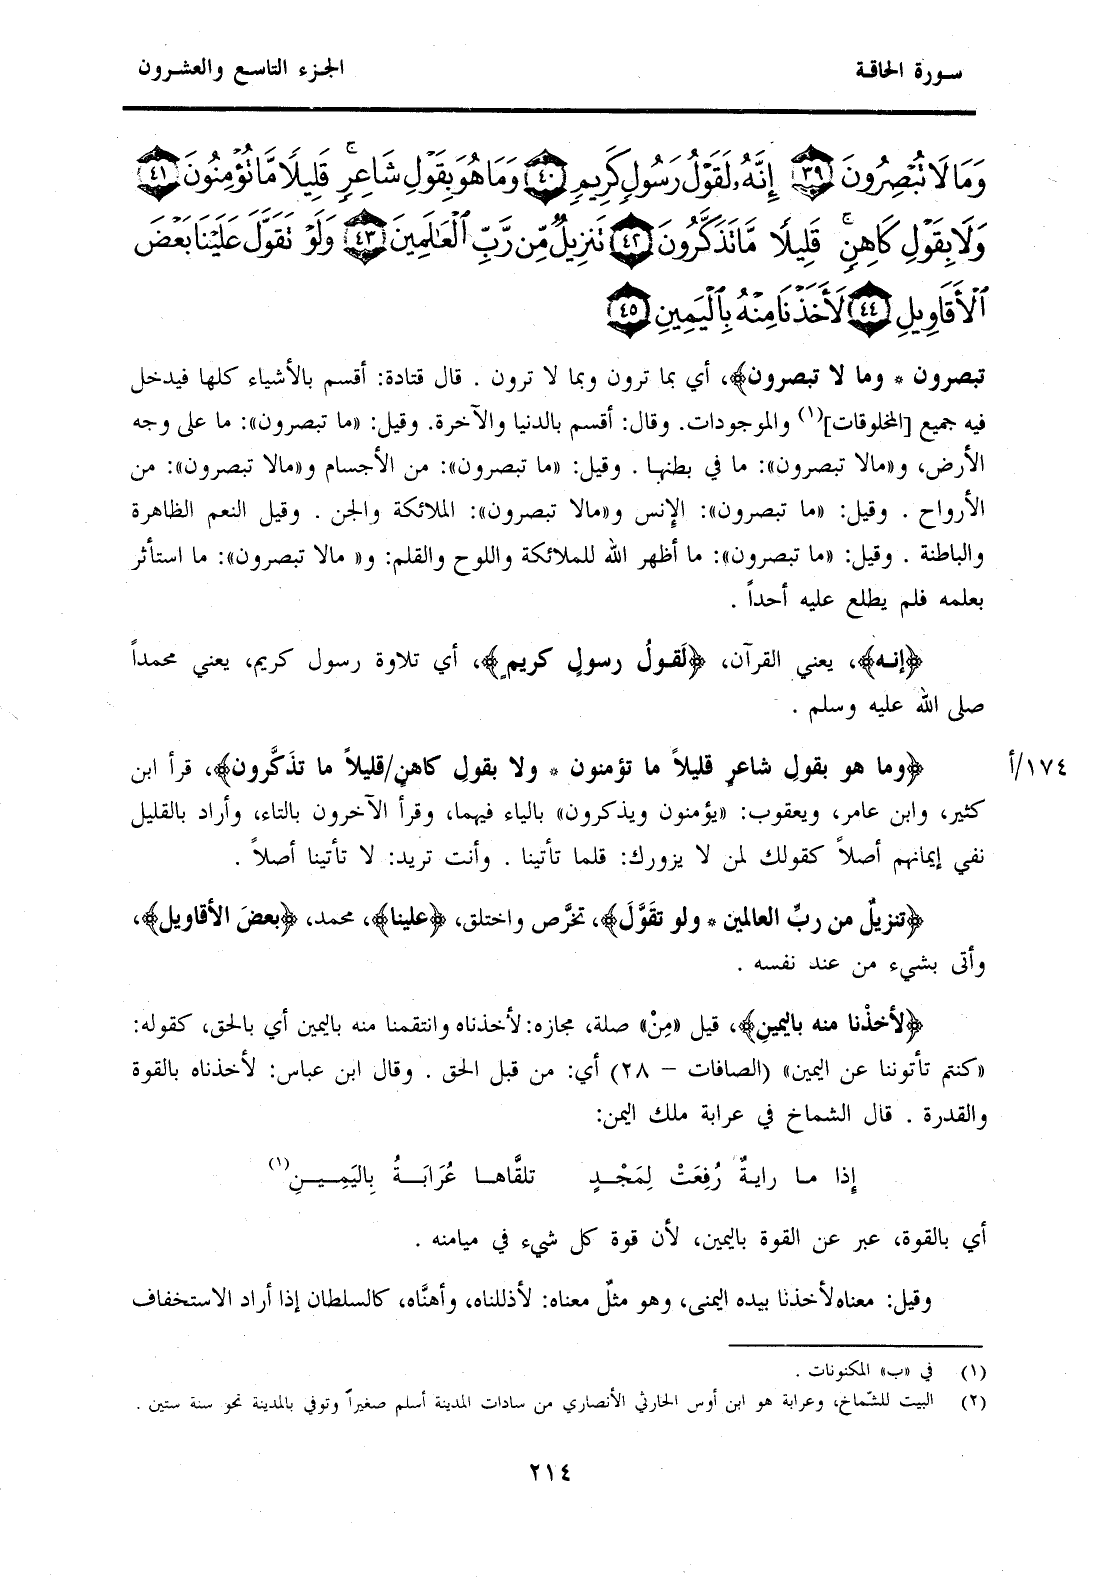 سورة الحاقة
الجزء التاسع والعشرون
وَمَا لَا تُبْصِرُونَ ٣٩ إِنَّهُۥ لَقَوْلُ رَسُولٍ كَرِيمٍ ٤٠ وَمَا هُوَ بِقَوْلِ شَاعِرٍۚ قَلِيلًا مَّا تُؤْمِنُونَ ٤١
وَلَا بِقَوْلِ كَاهِنٍۚ قَلِيلًا مَّا تَذَكَّرُونَ ٤٢ تَنزِيلٌ مِّن رَّبِّ ٱلْعَـٰلَمِينَ ٤٣ وَلَوْ تَقَوَّلَ عَلَيْنَا بَعْضَ
ٱلْأَقَاوِيلِ ٤٤ لَأَخَذْنَا مِنْهُ بِٱلْيَمِينِ ٤٥
تبصرون * وما لا تبصرون﴾، أي بما ترون وبما لا ترون . قال قتادة: أقسم بالأشياء كلها فيدخل
فيه جميع [المخلوقات](١) والموجودات. وقال: أقسم بالدنيا والآخرة. وقيل: «ما تبصرون»: ما على وجه
الأرض، و«مالا تبصرون»: ما في بطنها . وقيل: «ما تبصرون»: من الأجسام و«مالا تبصرون»: من
الأرواح . وقيل: «ما تبصرون»: الإنس و«مالا تبصرون»: الملائكة والجن . وقيل النعم الظاهرة
والباطنة . وقيل: «ما تبصرون»: ما أظهر الله للملائكة واللوح والقلم: و« مالا تبصرون»: ما استأثر
بعلمه فلم يطلع عليه أحداً .
﴿إنه﴾، يعني القرآن، ﴿لَقولُ رسولٍ كريمٍ﴾، أي تلاوة رسول كريم، يعني محمداً
صلى الله عليه وسلم .
١٧٤/أ
﴿وما هو بقولِ شاعرٍ قليلاً ما تؤمنون * ولا بقولِ كاهنٍ/قليلاً ما تذكَّرون﴾، قرأ ابن
كثير، وابن عامر، ويعقوب: «يؤمنون ويذكرون» بالياء فيهما، وقرأ الآخرون بالتاء، وأراد بالقليل
نفي إيمانهم أصلاً كقولك لمن لا يزورك: قلما تأتينا . وأنت تريد: لا تأتينا أصلاً .
﴿تنزيلٌ من ربِّ العالمين * ولو تقوَّل﴾، تخرَّص واختلق، ﴿علينا﴾، محمد، ﴿بعضَ الأقاويل﴾،
وأتى بشيء من عند نفسه .
﴿لأخذْنا منه باليمينِ﴾، قيل «مِنْ» صلة، مجازه: لأخذناه وانتقمنا منه باليمين أي بالحق، كقوله:
«كنتم تأتوننا عن اليمين» (الصافات – ٢٨) أي: من قبل الحق . وقال ابن عباس: لأخذناه بالقوة
والقدرة . قال الشماخ في عرابة ملك اليمن:
إذا ما رايةٌ رُفِعَتْ لِمَجْدٍ تلقَّاها عُرَابَةُ بِاليَمِينِ(١)
أي بالقوة، عبر عن القوة باليمين، لأن قوة كل شيء في ميامنه .
وقيل: معناه لأخذنا بيده اليمنى، وهو مثلٌ معناه: لأذللناه، وأهنَّاه، كالسلطان إذا أراد الاستخفاف
(١) في «ب» المكنونات .
(٢) البيت للشّماخ، وعرابة هو ابن أوس الحارثي الأنصاري من سادات المدينة أسلم صغيراً وتوفي بالمدينة نحو سنة ستين .
٢١٤